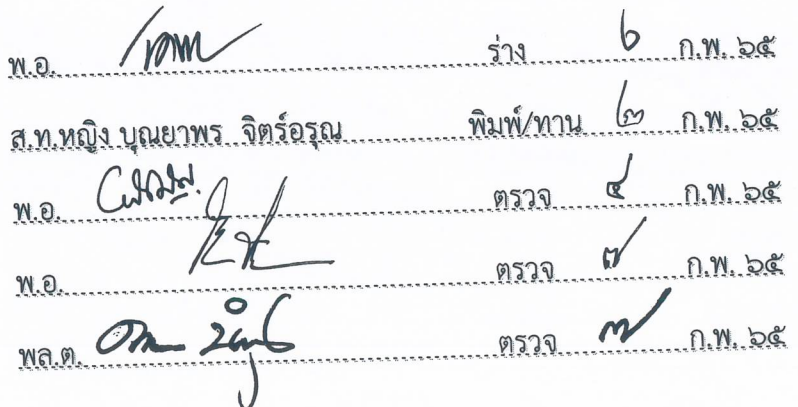 พ.อ. ร่าง ๖ ก.พ. ๖๕
ส.ท.หญิง บุณยาพร จิตร์อรุณ พิมพ์/ทาน ๒ ก.พ. ๖๕
พ.อ. ตรวจ ๔ ก.พ. ๖๕
พ.อ. ตรวจ ๗ ก.พ. ๖๕
พล.ต. ตรวจ ๗ ก.พ. ๖๕